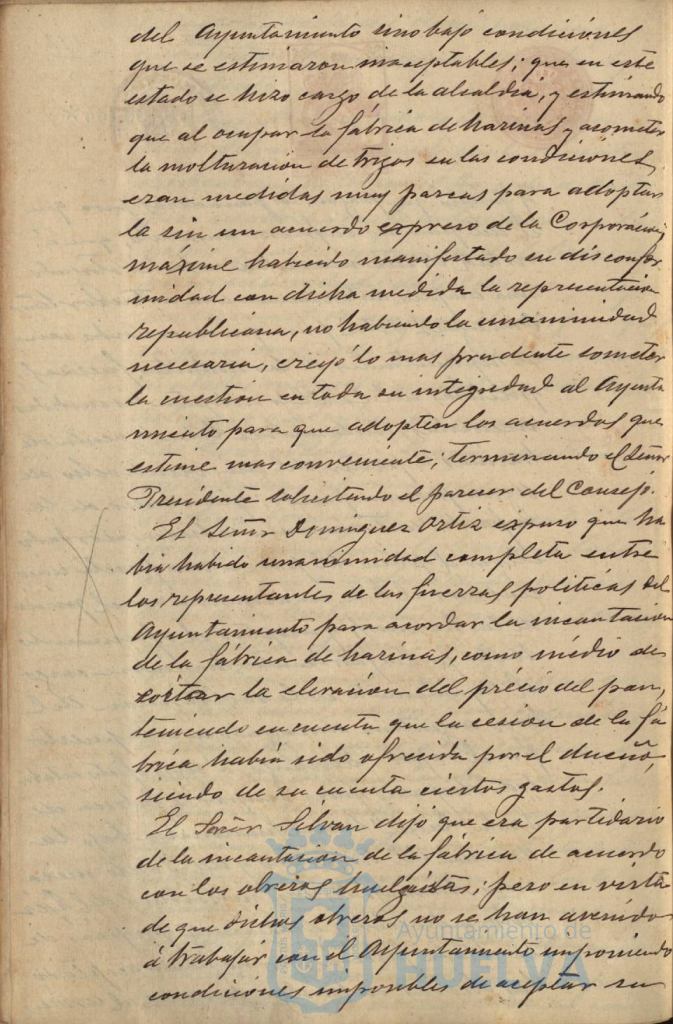 del Ayuntamiento sino bajo condiciones
que se estimaron inaceptables; que en este
estado se hizo cargo de la alcaldia, y estimando
que al ocupar la fábrica de harinas y acometer
la molturacion de trigos en las condiciones
eran medidas muy para adoptar
la sin un acuerdo expreso de la Corporación,
máxime habiendo manifestado su disconfor
midad con dicha medida la representacion
republicana, no habiendo la unanimidad
necesaria, creyó lo mas prudente someter
la cuestion en toda su integridad al Ayunta
miento para que adopten los acuerdos que
estime mas conveniente; terminando el Señor
Presidente solicitando el parecer del Consejo.
El Señor Dominguez Ortiz expuso que ha
bia habido unanimidad completa entre
los representantes de las fuerzas politicas del
Ayuntamiento para acordar la incautacion
de la fábrica de harinas, como médio de
cortar la elevacion del précio del pan,
teniendo en cuenta que la cesion de la fá
brica habia sido ofrecida por el dueño,
siendo de su cuenta ciertos gastos.
El Señor Silvan dijó que era partidario
de la incautacion de la fábrica de acuerdo
con los obreros huelgistas; pero en virtú
de que dichos obreros no se han avenido
á trabajar con el Ayuntamiento imponiendo
condiciones imposibles de aceptar su
Ayuntamiento de
HUELVA